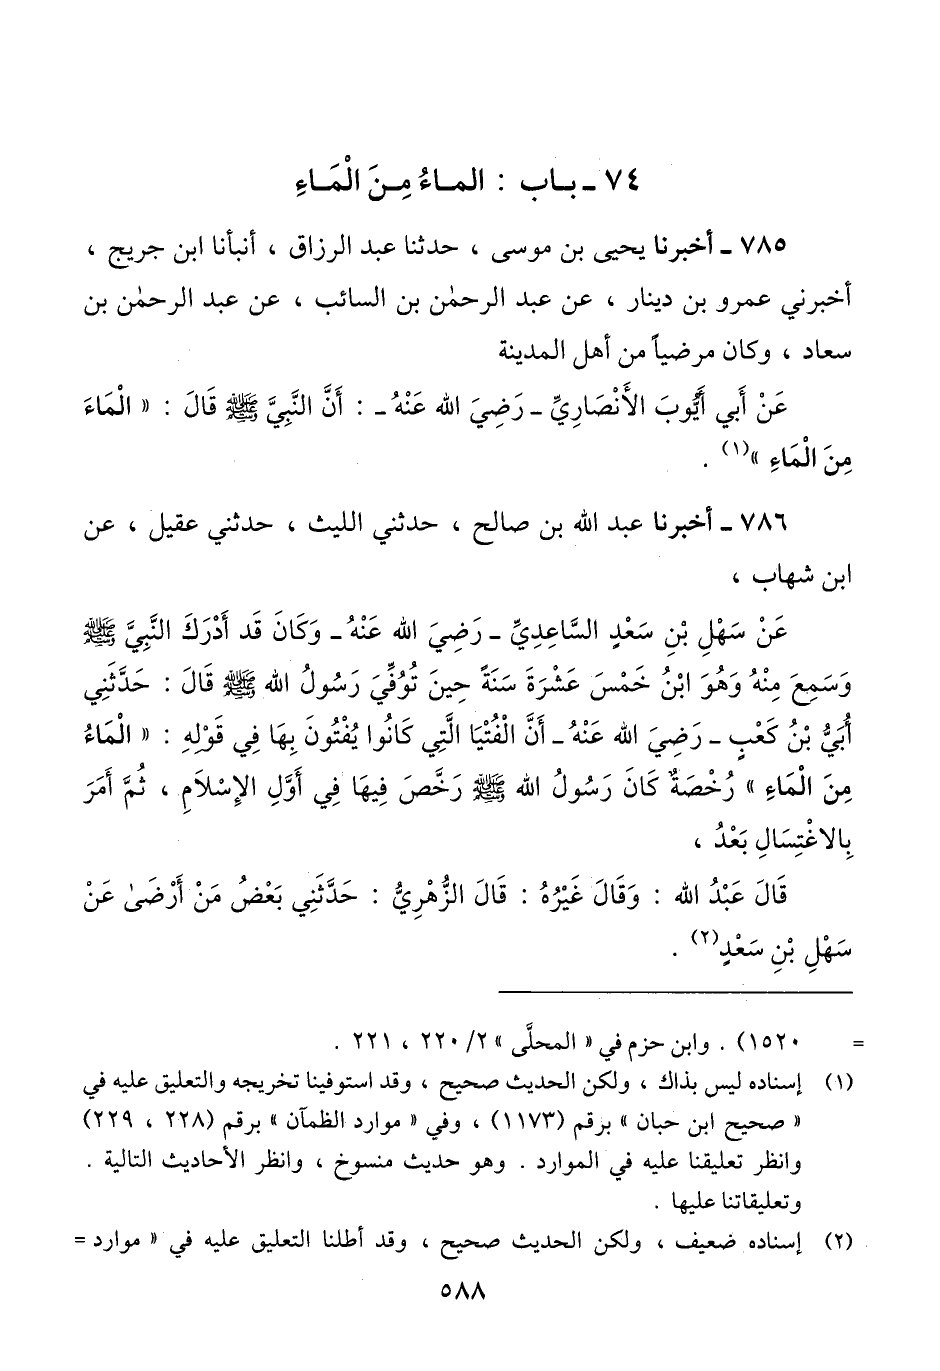 ٧٤ ـ بـاب : المـاءُ مِـنَ الْمَـاءِ
٧٨٥ ـ أخبرنا يحيى بن موسى ، حدثنا عبد الرزاق ، أنبأنا ابن جريج ،
أخبرني عمرو بن دينار ، عن عبد الرحمٰن بن السائب ، عن عبد الرحمٰن بن
سعاد ، وكان مرضياً من أهل المدينة
عَنْ أَبي أَيُّوبَ الأَنْصَارِيِّ ـ رَضِيَ الله عَنْهُ ـ : أَنَّ النَّبِيَّ ﷺ قَالَ : « الْمَاءَ
مِنَ الْمَاءِ »(١) .
٧٨٦ ـ أخبرنا عبد الله بن صالح ، حدثني الليث ، حدثني عقيل ، عن
ابن شهاب ،
عَنْ سَهْلِ بْنِ سَعْدٍ السَّاعِدِيِّ ـ رَضِيَ الله عَنْهُ ـ وَكَانَ قَد أَدْرَكَ النَّبِيَّ ﷺ
وَسَمِعَ مِنْهُ وَهُوَ ابْنُ خَمْسَ عَشْرَةَ سَنَةً حِينَ تُوُفِّيَ رَسُولُ الله ﷺ قَالَ : حَدَّثَنِي
أُبَيُّ بْنُ كَعْبٍ ـ رَضِيَ الله عَنْهُ ـ أَنَّ الْفُتْيَا الَّتِي كَانُوا يُفْتُونَ بِهَا فِي قَوْلِهِ : « الْمَاءُ
مِنَ الْمَاءِ » رُخْصَةٌ كَانَ رَسُولُ الله ﷺ رَخَّصَ فِيهَا فِي أَوَّلِ الإِسْلاَمِ ، ثُمَّ أَمَرَ
بِالاغْتِسَالِ بَعْدُ ،
قَالَ عَبْدُ الله : وَقَالَ غَيْرُهُ : قَالَ الزُّهْرِيُّ : حَدَّثَنِي بَعْضُ مَنْ أَرْضَىٰ عَنْ
سَهْلِ بْنِ سَعْدٍ(٢) .
= ١٥٢٠) . وابن حزم في « المحلَّى » ٢/ ٢٢٠ ، ٢٢١ .
(١) إسناده ليس بذاك ، ولكن الحديث صحيح ، وقد استوفينا تخريجه والتعليق عليه في
« صحيح ابن حبان » برقم (١١٧٣) ، وفي « موارد الظمآن » برقم (٢٢٨ ، ٢٢٩)
وانظر تعليقنا عليه في الموارد . وهو حديث منسوخ ، وانظر الأحاديث التالية .
وتعليقاتنا عليها .
(٢) إسناده ضعيف ، ولكن الحديث صحيح ، وقد أطلنا التعليق عليه في « موارد =
٥٨٨